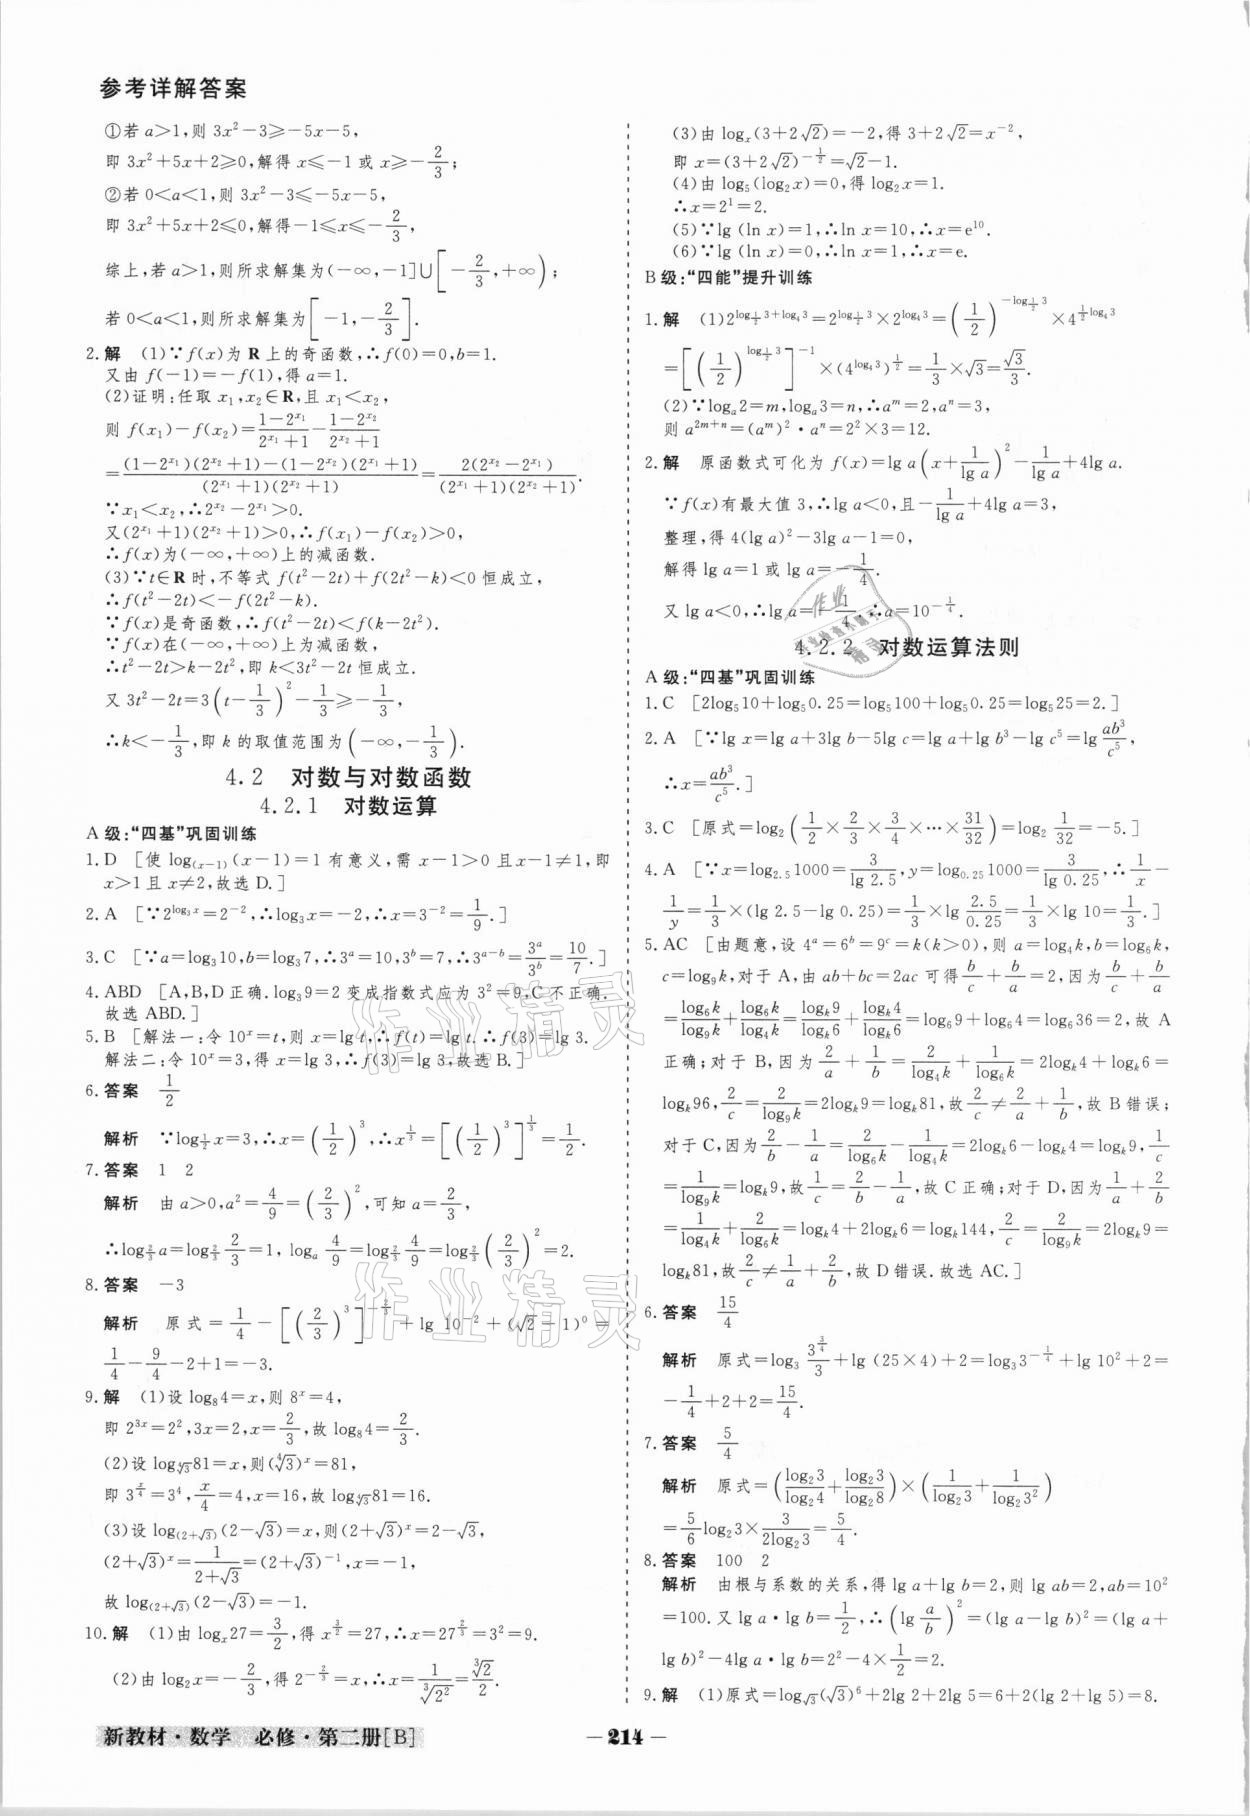 参考详解答案
①若 a>1,则 3x²-3≥-5x-5,
即 3x²+5x+2≥0,解得 x≤-1 或 x≥-2/3;
②若 0<a<1,则 3x²-3≤-5x-5,
即 3x²+5x+2≤0,解得-1≤x≤-2/3,
综上,若 a>1,则所求解集为(-∞,-1]∪[-2/3,+∞);
若 0<a<1,则所求解集为[-1,-2/3].
2.解 (1)∵f(x)为 R 上的奇函数,∴f(0)=0,b=1.
又由 f(-1)=-f(1),得 a=1.
(2)证明:任取 x₁,x₂∈R,且 x₁<x₂,
则 f(x₁)-f(x₂)=(1-2^{x₁})/(2^{x₁}+1)-(1-2^{x₂})/(2^{x₂}+1)
=[(1-2^{x₁})(2^{x₂}+1)-(1-2^{x₂})(2^{x₁}+1)]/[(2^{x₁}+1)(2^{x₂}+1)]=2(2^{x₂}-2^{x₁})/[(2^{x₁}+1)(2^{x₂}+1)].
∵x₁<x₂,∴2^{x₂}-2^{x₁}>0.
又(2^{x₁}+1)(2^{x₂}+1)>0,∴f(x₁)-f(x₂)>0,
∴f(x)为(-∞,+∞)上的减函数.
(3)∵t∈R 时,不等式 f(t²-2t)+f(2t²-k)<0 恒成立,
∴f(t²-2t)<-f(2t²-k).
∵f(x)是奇函数,∴f(t²-2t)<f(k-2t²).
∵f(x)在(-∞,+∞)上为减函数,
∴t²-2t>k-2t²,即 k<3t²-2t 恒成立.
又 3t²-2t=3(t-1/3)²-1/3≥-1/3.
∴k<-1/3,即 k 的取值范围为(-∞,-1/3).
4.2 对数与对数函数
4.2.1 对数运算
A 级:“四基”巩固训练
1.D [使 log_{(x-1)}(x-1)=1 有意义,需 x-1>0 且 x-1≠1,即
x>1 且 x≠2,故选 D.]
2.A [∵2^{log₃x}=2⁻²,∴log₃x=-2,∴x=3⁻²=1/9.]
3.C [∵a=log₃10,b=log₃7,∴3^a=10,3^b=7,∴3^{a-b}=3^a/3^b=10/7.]
4.ABD [A,B,D 正确.log₃9=2 变成指数式应为 3²=9,C 不正确.
故选 ABD.]
5.B [解法一:令 10^x=t,则 x=lg t,∴f(t)=lg t.∴f(3)=lg 3.
解法二:令 10^x=3,得 x=lg 3,∴f(3)=lg 3,故选 B.]
6.答案 1/2
解析 ∵log_{1/2}x=3,∴x=(1/2)³,∴x^{1/3}=[(1/2)³]^{1/3}=1/2.
7.答案 1 2
解析 由 a>0,a²=4/9=(2/3)²,可知 a=2/3,
∴log_{2/3}a=log_{2/3}2/3=1, log_a 4/9=log_{2/3}4/9=log_{2/3}(2/3)²=2.
8.答案 -3
解析 原式=1/4-[(2/3)³]^{-2/3}+lg 10⁻²+(√2-1)⁰=
1/4-9/4-2+1=-3.
9.解 (1)设 log₈4=x,则 8^x=4,
即 2^{3x}=2²,3x=2,x=2/3,故 log₈4=2/3.
(2)设 log_{∜3}81=x,则(∜3)^x=81,
即 3^{x/4}=3⁴,x/4=4,x=16,故 log_{∜3}81=16.
(3)设 log_{(2+√3)}(2-√3)=x,则(2+√3)^x=2-√3,
(2+√3)^x=1/(2+√3)=(2+√3)⁻¹,x=-1,
故 log_{(2+√3)}(2-√3)=-1.
10.解 (1)由 log_x27=3/2,得 x^{3/2}=27,∴x=27^{2/3}=3²=9.
(2)由 log₂x=-2/3,得 2^{-2/3}=x,∴x=1/∛2²=∛2/2.
(3)由 log_x(3+2√2)=-2,得 3+2√2=x⁻²,
即 x=(3+2√2)^{-1/2}=√2-1.
(4)由 log₅(log₂x)=0,得 log₂x=1.
∴x=2¹=2.
(5)∵lg (ln x)=1,∴ln x=10,∴x=e¹⁰.
(6)∵lg (ln x)=0,∴ln x=1,∴x=e.
B 级:“四能”提升训练
1.解 (1)2^{log_{1/2}3+log₄3}=2^{log_{1/2}3}×2^{log₄3}=(1/2)^{-log_{1/2}3}×4^{1/2 log₄3}
=[(1/2)^{log_{1/2}3}]⁻¹×(4^{log₄3})^{1/2}=1/3×√3=√3/3.
(2)∵log_a2=m,log_a3=n,∴a^m=2,a^n=3,
则 a^{2m+n}=(a^m)²·a^n=2²×3=12.
2.解 原函数式可化为 f(x)=lg a(x+1/lg a)²-1/lg a+4lg a.
∵f(x)有最大值 3,∴lg a<0,且-1/lg a+4lg a=3,
整理,得 4(lg a)²-3lg a-1=0,
解得 lg a=1 或 lg a=-1/4.
又 lg a<0,∴lg a=-1/4.∴a=10^{-1/4}.
4.2.2 对数运算法则
A 级:“四基”巩固训练
1.C [2log₅10+log₅0.25=log₅100+log₅0.25=log₅25=2.]
2.A [∵lg x=lg a+3lg b-5lg c=lg a+lg b³-lg c⁵=lg ab³/c⁵,
∴x=ab³/c⁵.]
3.C [原式=log₂(1/2×2/3×3/4×…×31/32)=log₂ 1/32=-5.]
4.A [∵x=log_{2.5}1000=3/lg 2.5,y=log_{0.25}1000=3/lg 0.25,∴1/x-
1/y=1/3×(lg 2.5-lg 0.25)=1/3×lg 2.5/0.25=1/3×lg 10=1/3.]
5.AC [由题意,设 4^a=6^b=9^c=k(k>0),则 a=log₄k,b=log₆k,
c=log₉k,对于 A,由 ab+bc=2ac 可得 b/c+b/a=2,因为 b/c+b/a
=log₆k/log₉k+log₆k/log₄k=log_k9/log_k6+log_k4/log_k6=log₆9+log₆4=log₆36=2,故 A
正确;对于 B,因为 2/a+1/b=2/log₄k+1/log₆k=2log_k4+log_k6=
log_k96,2/c=2/log₉k=2log_k9=log_k81,故 2/c≠2/a+1/b,故 B 错误;
对于 C,因为 2/b-1/a=2/log₆k-1/log₄k=2log_k6-log_k4=log_k9,1/c
=1/log₉k=log_k9,故 1/c=2/b-1/a,故 C 正确;对于 D,因为 1/a+2/b
=1/log₄k+2/log₆k=log_k4+2log_k6=log_k144,2/c=2/log₉k=2log_k9=
log_k81,故 2/c≠1/a+2/b,故 D 错误.故选 AC.]
6.答案 15/4
解析 原式=log₃ 3^{3/4}/3+lg (25×4)+2=log₃3^{-1/4}+lg 10²+2=
-1/4+2+2=15/4.
7.答案 5/4
解析 原式=(log₂3/log₂4+log₂3/log₂8)×(1/log₂3+1/log₂3²)
=5/6log₂3×3/(2log₂3)=5/4.
8.答案 100 2
解析 由根与系数的关系,得 lg a+lg b=2,则 lg ab=2,ab=10²
=100.又 lg a·lg b=1/2,∴(lg a/b)²=(lg a-lg b)²=(lg a+
lg b)²-4lg a·lg b=2²-4×1/2=2.
9.解 (1)原式=log_{√3}(√3)⁶+2lg 2+2lg 5=6+2(lg 2+lg 5)=8.
新教材·数学 必修·第二册[B]
— 214 —
作业精灵
作业精灵